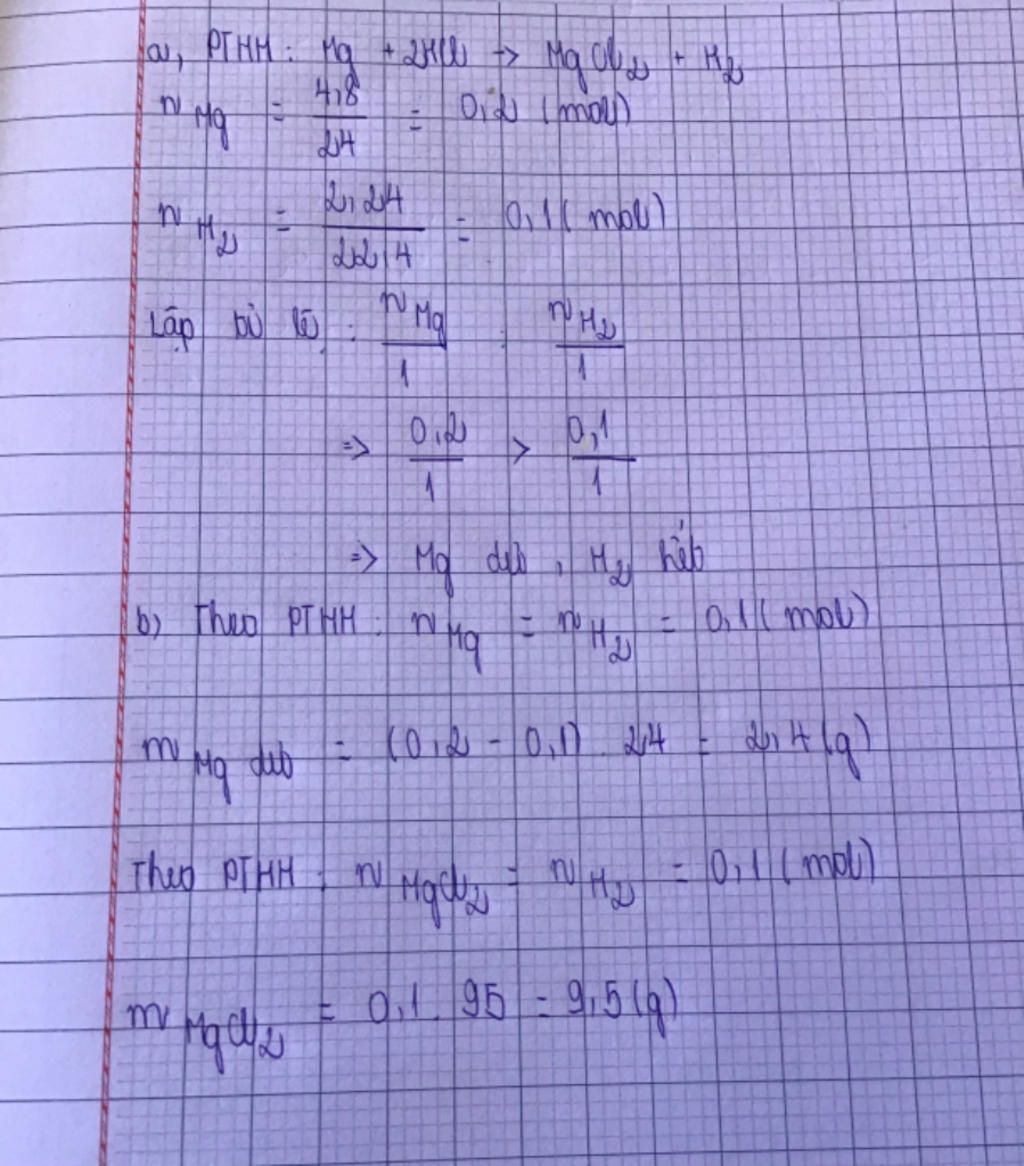 a, PTHH: Mg + 2HCl → MgCl₂ + H₂
n Mg = 4,8 / 24 = 0,2 (mol)
n H₂ = 2,24 / 22,4 = 0,1 (mol)
Lập tỉ lệ: n Mg / 1 : n H₂ / 1
=> 0,2 / 1 > 0,1 / 1
=> Mg dư, H₂ hết
b) Theo PTHH: n Mg = n H₂ = 0,1 (mol)
m Mg dư = (0,2 - 0,1) . 24 = 2,4 (g)
Theo PTHH: n MgCl₂ = n H₂ = 0,1 (mol)
m MgCl₂ = 0,1 . 95 = 9,5 (g)